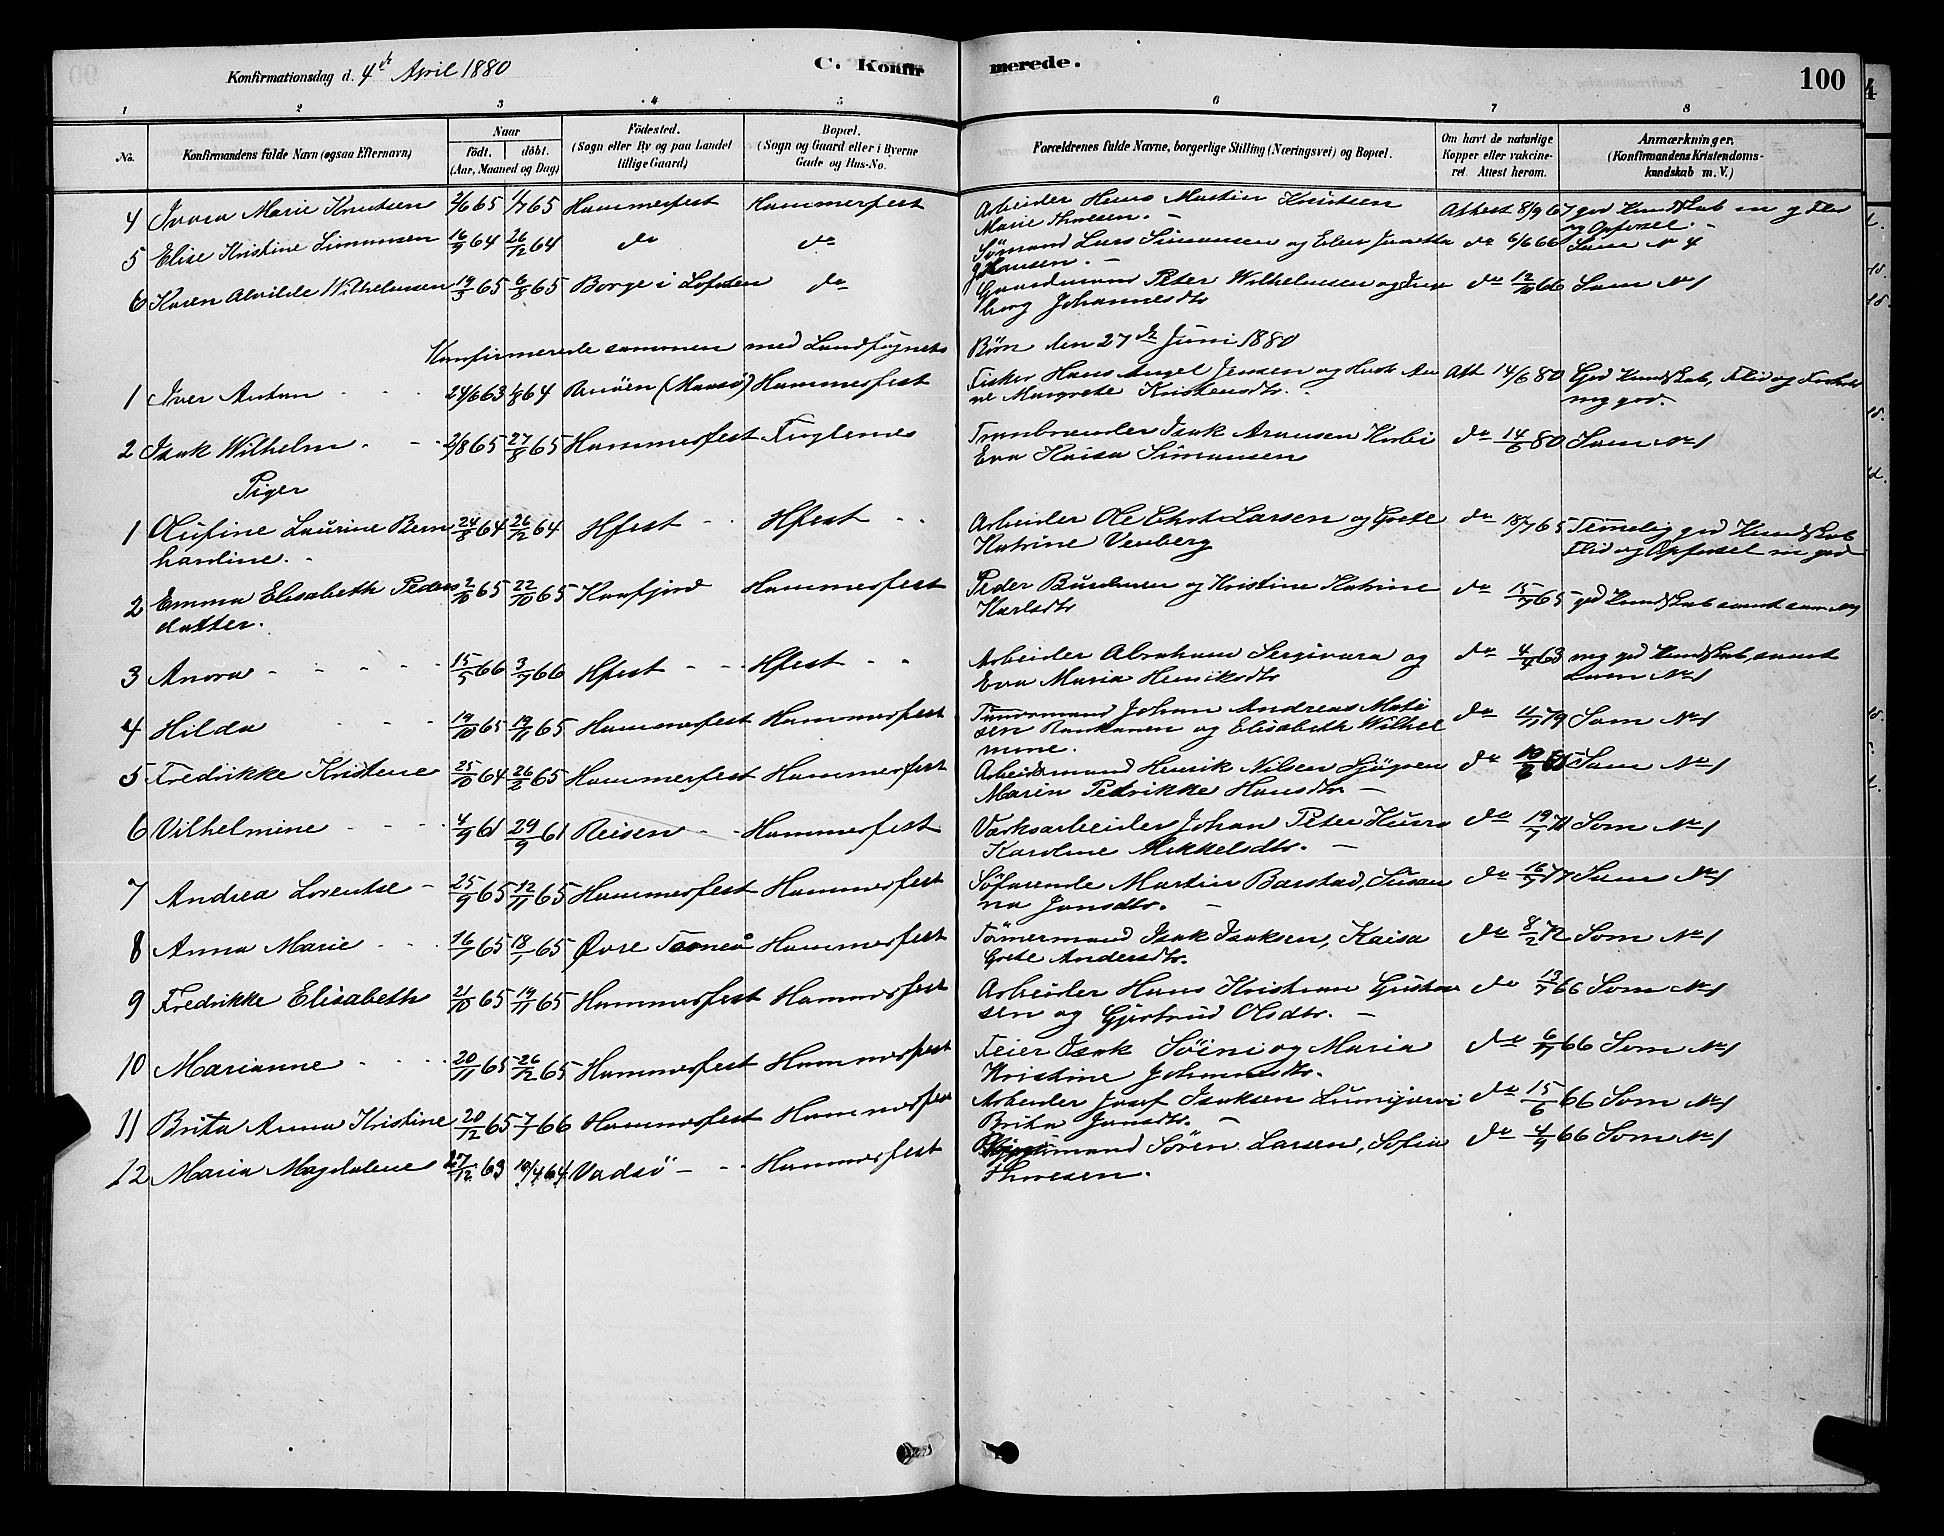 Konfirmationsdag d. 4de April 1880
C. Konfirmerede.
100
1 2 3 4 5 6 7 8
No.
Konfirmandens fulde Navn (ogsaa Efternavn)
Naar
födt. döbt.
(Aar, Maaned og Dag)
Födested.
(Sogn eller By og paa Landet
tillige Gaard)
Bopæl.
(Sogn og Gaard eller i Byerne
Gade og Hus-No.
Forældrenes fulde Navne, borgerlige Stilling (Næringsvei) og Bopæl.
Om havt de naturlige
Kopper eller vakcine-
ret. Attest herom.
Anmærkninger.
(Konfirmandens Kristendoms-
kundskab m. V.)
4 Marie Knutsen 2/6 65 1/7 65 Hammerfest Hammerfest Arbeider Hans Martin Knutsen Attest 8/9 67 god Kundskab m g Flid
Marie Thoresen. og Opførsel.
5 Elise Kristine Simonsen 16/9 64 26/12 64 do do Sømand Lars Simonsen og Elen do 6/6 66 Som No 4
Johansen.
6 Karen Alvilde Wilhelmsen 19/3 65 6/8 65 Borge i Lofoten do Gaardmand Peter Wilhelmsen og do 12/10 66 Som No 1
borg Johannesdtr
Konfirmerede sammen med Landsognets Børn den 27de Juni 1880
1 Iver Anton 24/6 63 1/8 64 (Maasø) Hammerfest Fisker Hans Angel Jensen og Hust An Att 14/6 80 God Kundskab, Flid og Forhold
ne Margrete Kristensdtr. mg god.
2 Isak Wilhelm 2/8 65 27/8 65 Hammerfest Fuglenes Tranbrænder Isak Aronsen do 14/6 80 Som No 1
Eva Kaisa Simonsen
Piger
1 Olufine Laurine Bern 24/8 64 26/12 64 Hfest Hfest Arbeider Ole Chr Larsen og Grete do 18/7 65 Temmelig god Kundskab
hardine. Katrine Venberg Flid og Opførsel m god
2 Emma Elisabeth Peders 2/10 65 22/10 65 Kaafjord Hammerfest Peder og Kristine Katrine do 15/7 65 god Kundskab samt som No 1
datter. Karlsdtr
3 15/5 66 3/7 66 Hfest Hfest Arbeider Abraham og do 4/4 63 mg god Kundskab, samt
Eva Maria Henriksdtr Som No 1
4 Hilda 19/10 65 19/11 65 Hammerfest Hammerfest Johan Andreas Mati do 79 Som No 1
sen og Elisabeth Wilhel
mine.
5 Fredrikke Kristine 25/10 64 26/2 65 Hammerfest Hammerfest Arbeidsmand Henrik Nilsen do Som No 1
Maren Pedrikke Hansdtr.
6 Vilhelmine 4/9 61 29/9 61 Reisen Hammerfest Værksarbeider Johan Peter do 19/7 71 Som No 1
Karoline Mikkelsdtr.
7 Andrea Lorentse 25/9 65 12/11 65 Hammerfest Hammerfest Søfarende Martin Barstad, Susan do 16/7 77 Som No 1
na Jonsdtr.
8 Anna Marie 16/1 65 18/1 65 Øvre Torneå Hammerfest Tömermand Isak Isaksen, Kaisa do 8/2 72 Som No 1
Grete Andersdtr.
9 Fredrikke Elisabeth 21/10 65 19/11 65 Hammerfest Hammerfest Arbeider Hans Kristian Gustav do 13/7 66 Som No 1
sen og Gjertrud Olsdtr.
10 Marianne 20/11 65 26/12 65 Hammerfest Hammerfest Feier Isak Söini og Maria do 6/7 66 Som No 1
Kristine Johannesdtr.
11 Brita Anna Kristine 20/12 65 7/1 66 Hammerfest Hammerfest Arbeider Josef Isaksen Lumijärvi do 15/6 66 Som No 1
Brita Jonsdtr.
12 Maria Magdalene 27/12 63 10/4 64 Vadsö Hammerfest Sören Larsen, Sofia do 4/9 66 Som No 1
Thoresen.